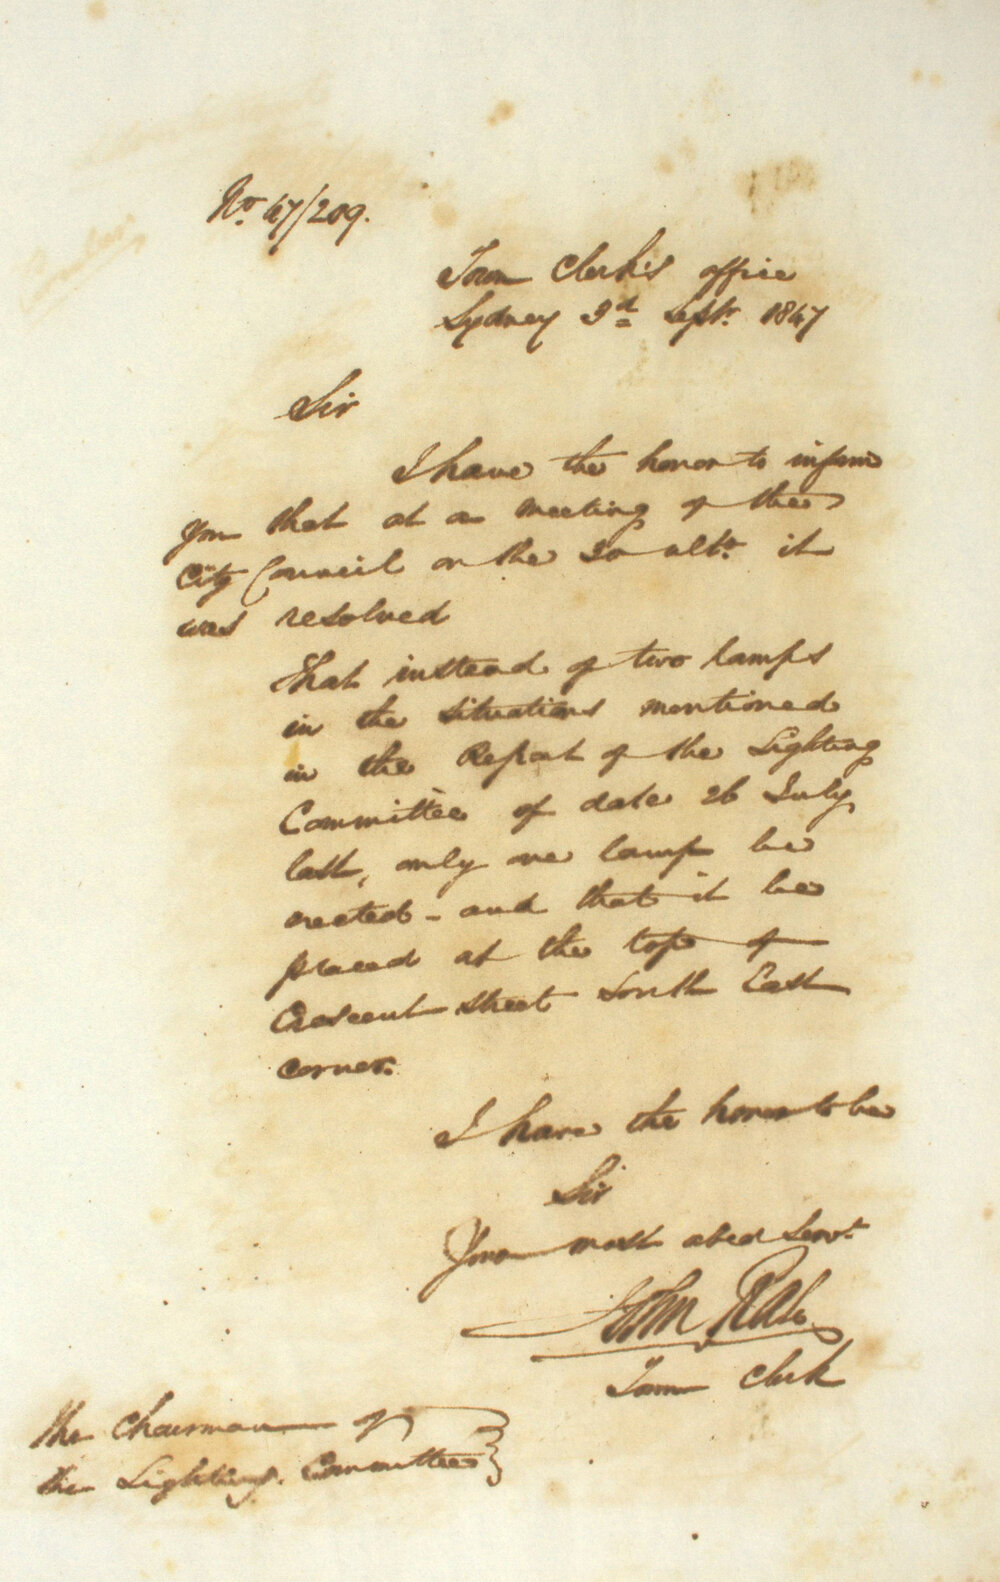 No. 47/209.
Town Clerk's office
Sydney 3d Septr. 1847
Sir
I have the honor to inform
you that at a meeting of the
City Council on the 30 ulto. it
was resolved
That instead of two lamps
in the situations mentioned
in the Report of the Lighting
Committee of date 26 July
last, only one lamp be
erected - and that it be
placed at the top of
Crescent Street South East
corner.
I have the honor to be
Sir
Your most obed Servt.
John Rae
Town Clerk
The Chairman of
the Lighting Committee